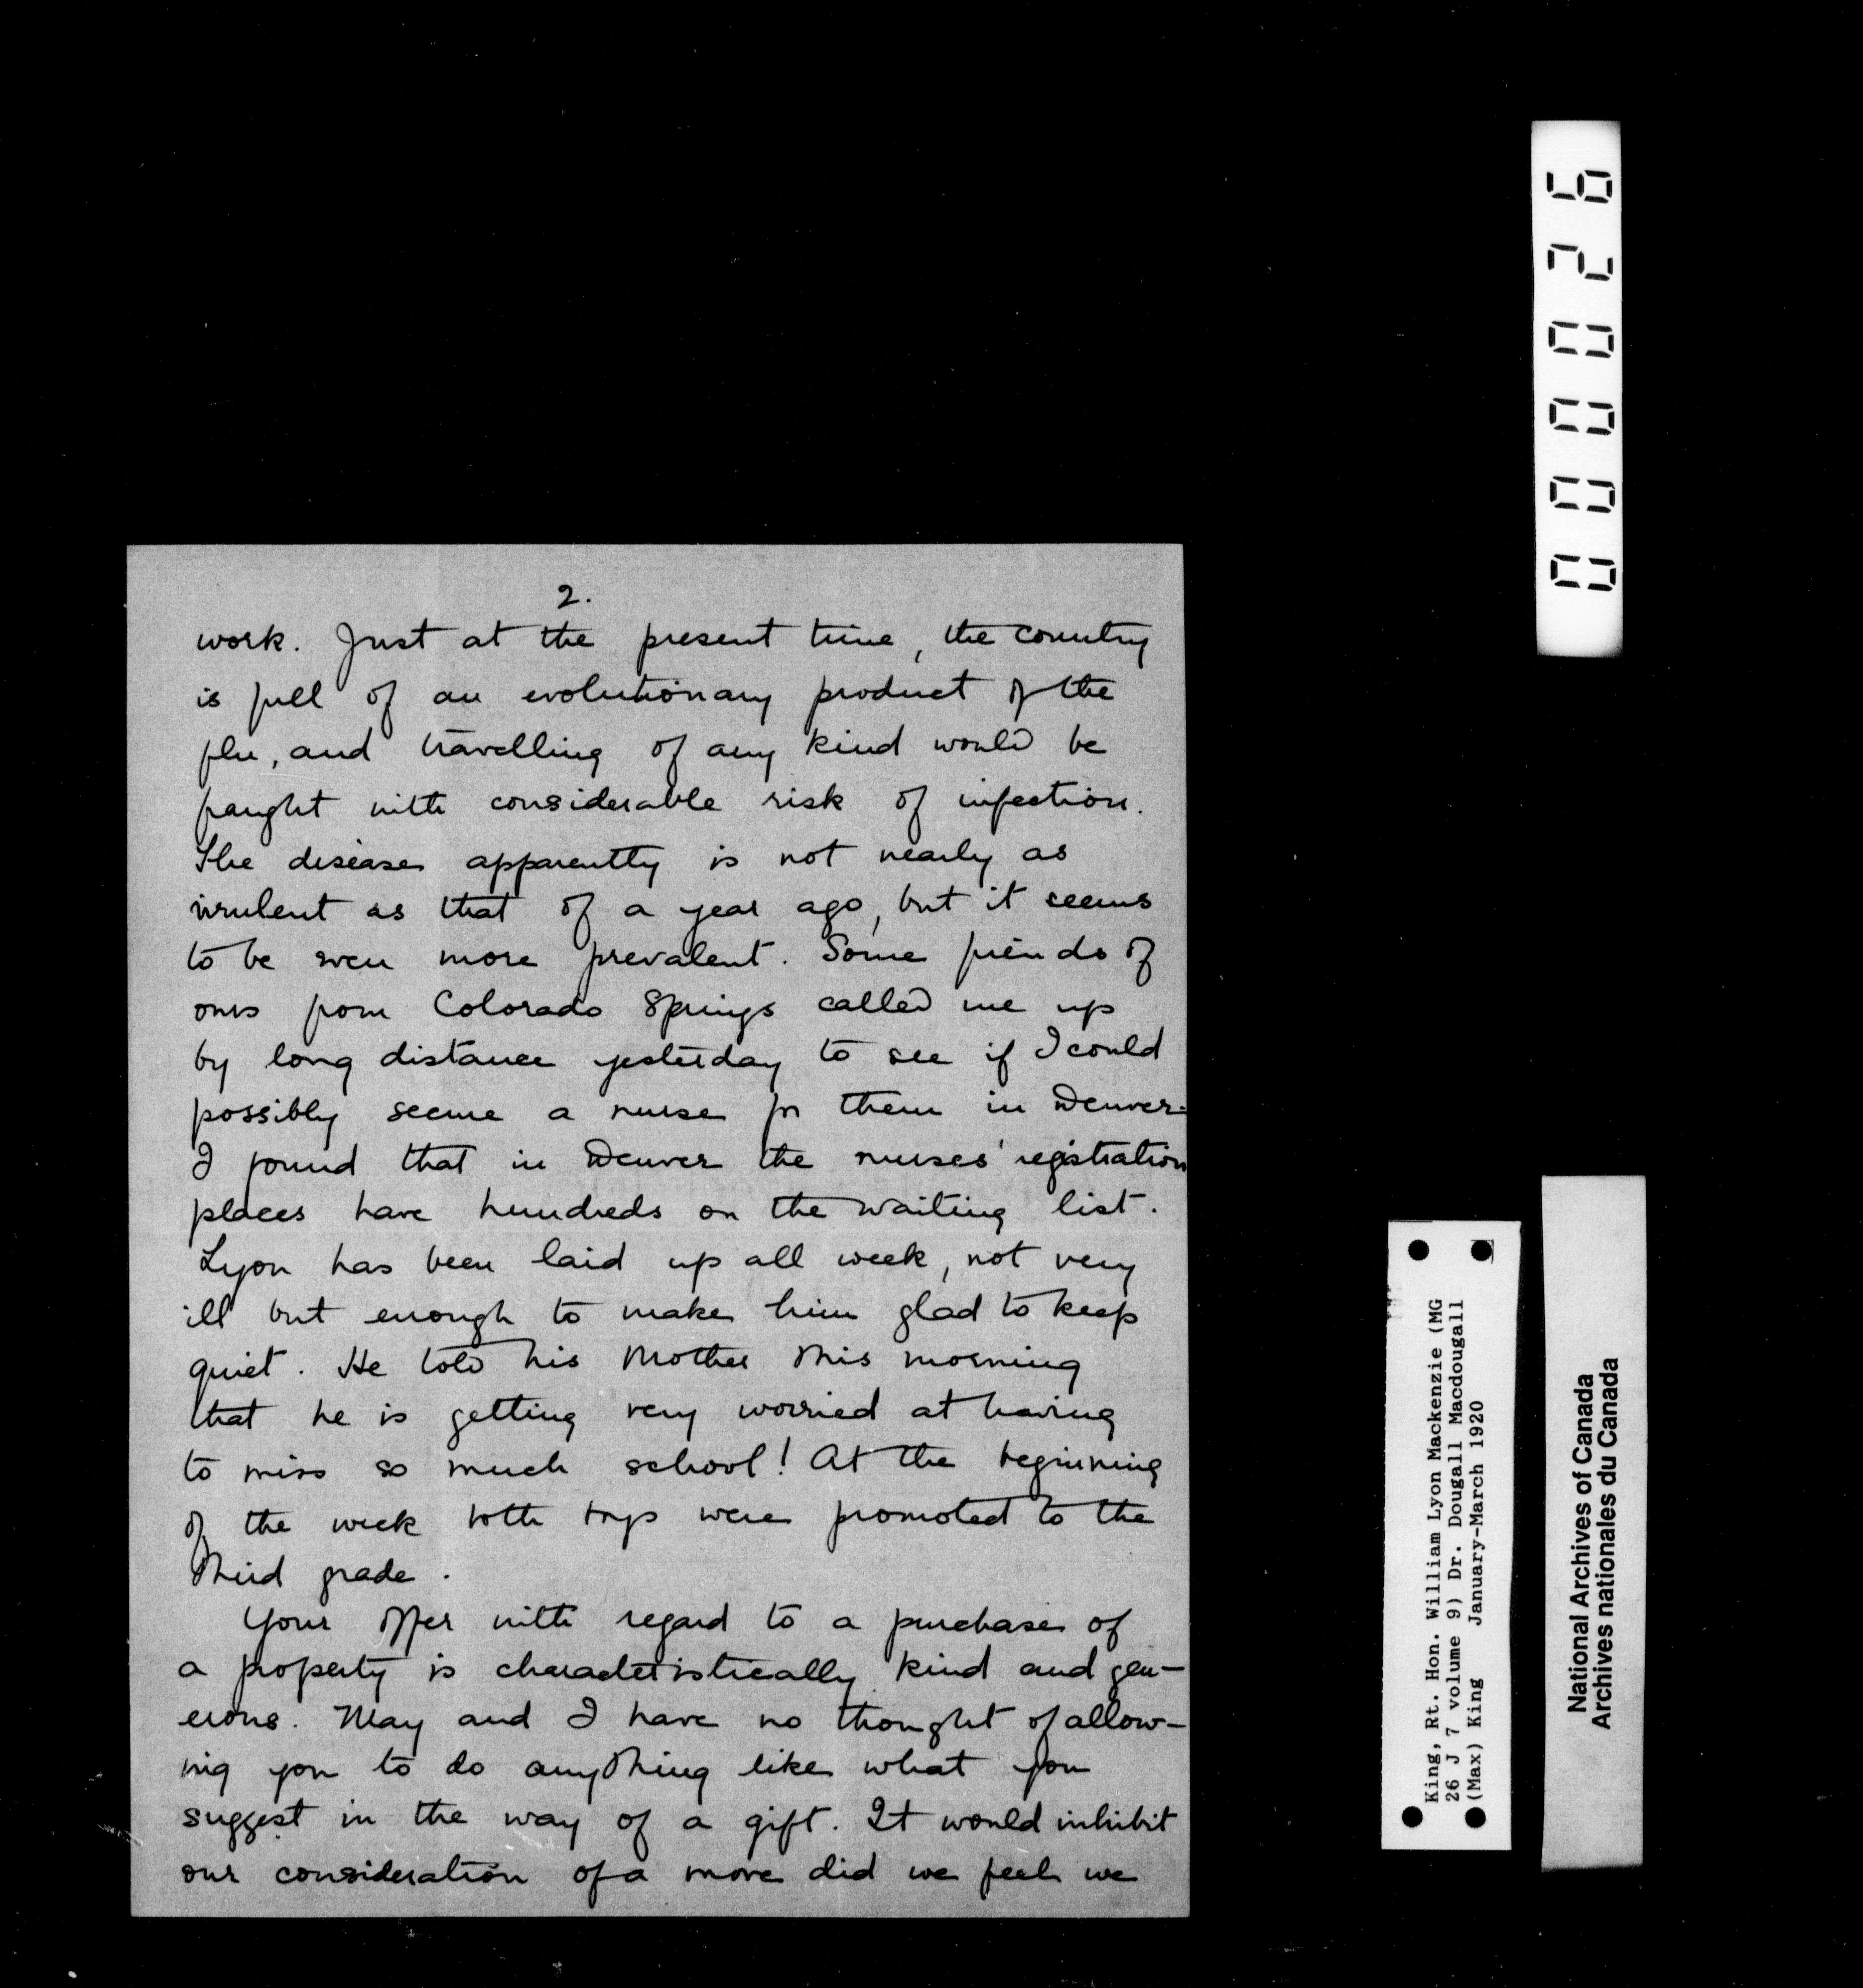 2.
work. Just at the present time, the country
is full of an evolutionary product of the
flu, and travelling of any kind would be
fraught with considerable risk of infection.
The disease apparently is not nearly as
virulent as that of a year ago, but it seems
to be even more prevalent. Some friends of
ours from Colorado Springs called me up
by long distance yesterday to see if I could
possibly secure a nurse for them in Denver.
I found that in Denver the nurses' registration
places have hundreds on the waiting list.
Lyon has been laid up all week, not very
ill but enough to make him glad to keep
quiet. He told his Mother this morning
that he is getting very worried at having
to miss so much school! At the beginning
of the week both boys were promoted to the
third grade.
Your offer with regard to a purchase of
a property is characteristically kind and gen-
erous. May and I have no thought of allow-
ing you to do anything like what you
suggest in the way of a gift. It would inhibit
our consideration of a move did we feel we
000026
King, Rt. Hon. William Lyon Mackenzie (MG
26 J 7 volume 9) Dr. Dougall Macdougall
(Max) King January-March 1920
National Archives of Canada
Archives nationales du Canada